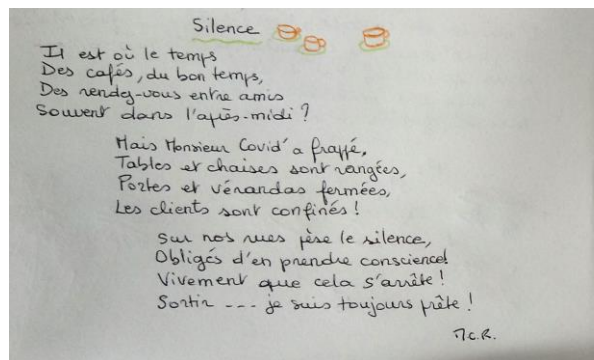 Silence
Il est où le temps
Des cafés, du bon temps,
Des rendez-vous entre amis
Souvent dans l'après-midi ?
Mais Monsieur Covid' a frappé,
Tables et chaises sont rangées,
Portes et vérandas fermées,
Les clients sont confinés !
Sur nos rues pèse le silence,
Obligés d'en prendre conscience!
Vivement que cela s'arrête !
Sortir --- je suis toujours prête !
M.C.R.